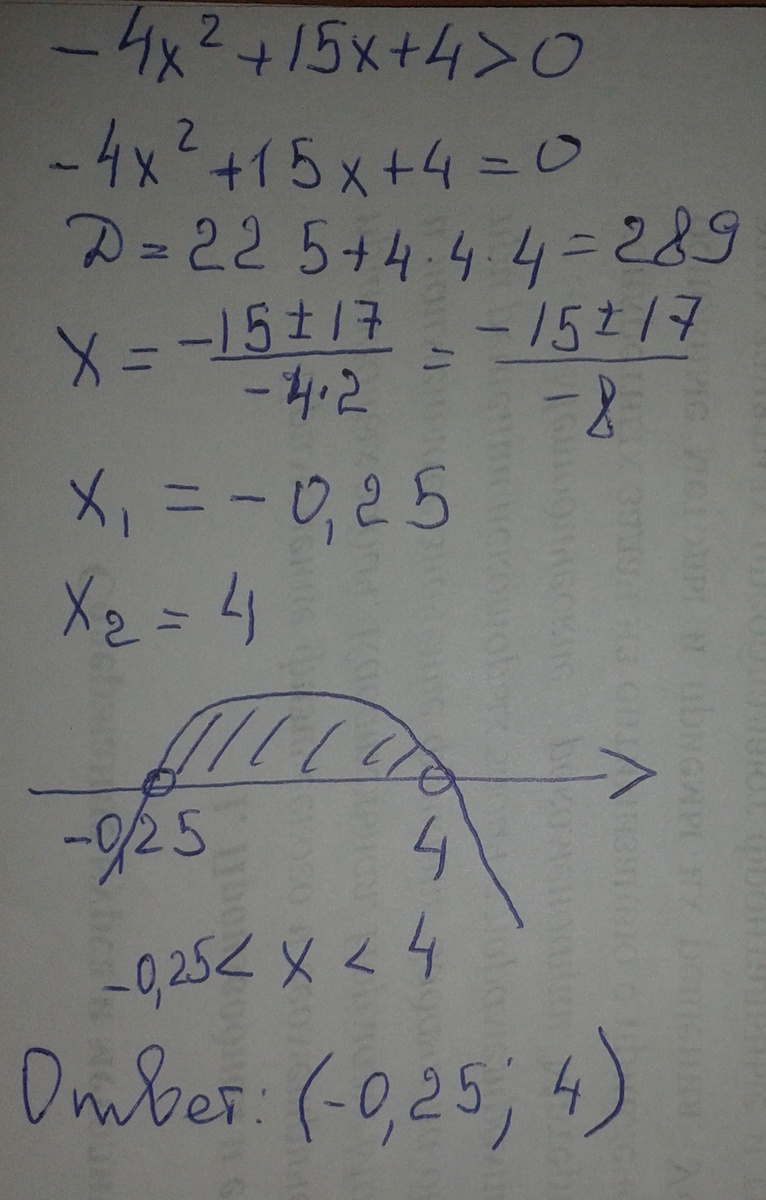 -4x² + 15x + 4 > 0
-4x² + 15x + 4 = 0
D = 225 + 4 · 4 · 4 = 289
x = (-15 ± 17)/(-4·2) = (-15 ± 17)/(-8)
x₁ = -0,25
x₂ = 4
-0,25 4
-0,25 < x < 4
Ответ: (-0,25; 4)